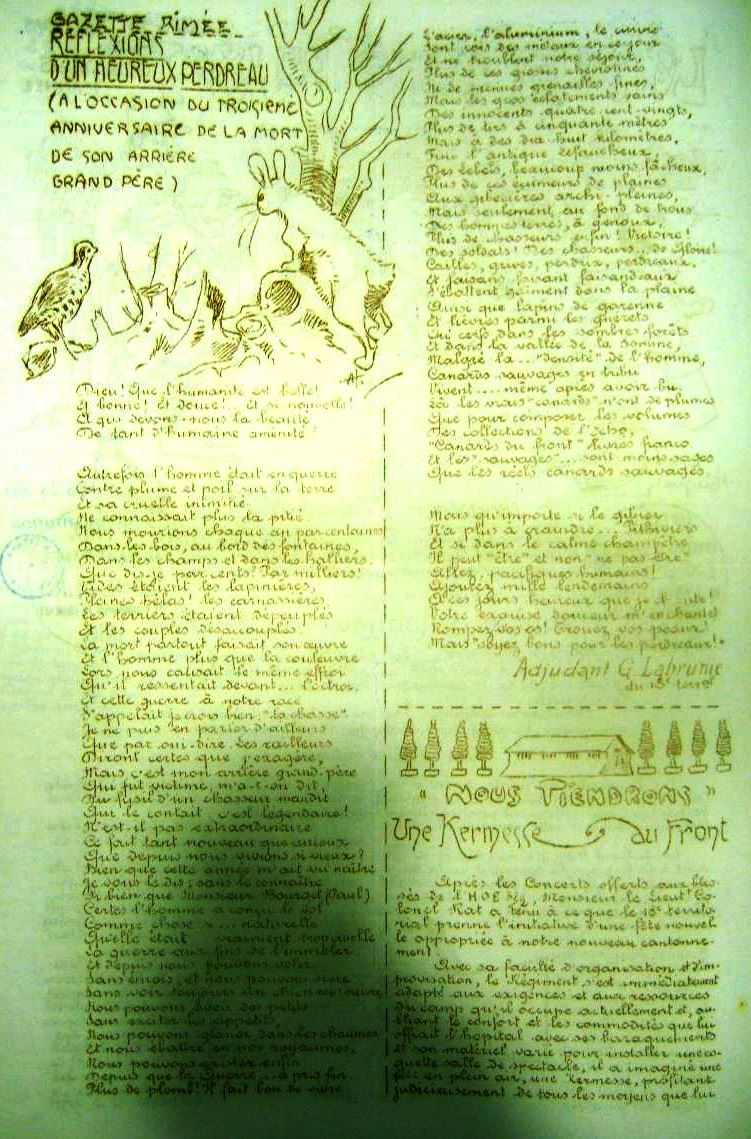 GAZETTE RIMÉE
REFLEXIONS
D'UN HEUREUX PERDREAU
(A L'OCCASION DU TROISIEME
ANNIVERSAIRE DE LA MORT
DE SON ARRIÈRE
GRAND PÈRE)
Dieu! Que l'humanité est belle!
Et bonne! Et douce! Et si nouvelle!
Et qui devons-nous la beauté
De tant d'humaine aménité
Autrefois l'homme était en guerre
Contre plume et poil sur la terre
Et sa cruelle inimitié
Ne connaissait plus la pitié
Nous mourions chaque an par centaines
Dans les bois, au bord des fontaines,
Dans les champs et dans les halliers.
Que dis-je par cents! Par milliers!
Vides étaient les lapinières,
Pleines hélas! les carnassières
Les terriers étaient dépeuplés
Et les couples désaccouplés
La mort partout faisait son œuvre
Et l'homme plus que la couleuvre
Lors nous causait le même effroi
Qu'il ressentait devant... l'octroi.
Et cette guerre à notre race
S'appelait je crois bien "la chasse"
Je ne puis en parler d'ailleurs
Que par ouï-dire. Les railleurs
Diront certes que j'exagère,
Mais c'est mon arrière grand-père
Qui fut victime, m'a-t-on dit,
Du fusil d'un chasseur maudit
Qui le contait c'est légendaire!
N'est-il pas extraordinaire
Ce fait tant nouveau que curieux
Que depuis nous vivions si vieux?
Bien que cette année m'ait vu naître
Je vous le dis; sans le connaître
Si bien que Monsieur Bourget (Paul)
Certes l'homme a conçu le vol
Comme chose si... naturelle
Qu'elle était vraiment trop cruelle
La guerre aux fins de l'immoler
Et depuis nous pouvons voler
Sans émois, et nous pouvons vivre
Sans voir toujours un chien nous suivre
Nous pouvons avoir des petits
Sans exciter les appétits,
Nous pouvons dans les chaumes
Et nous ébattre en nos royaumes,
Nous pouvons exister enfin
Depuis que la Guerre... a pris fin
Plus de plomb! Il fait bon de vivre
L'acier, l'aluminium, le cuivre
Sont rois des métaux en ce jour
Et ne troublent notre séjour,
Plus de ces grosses chevrotines
Ni de menues grenailles fines,
Mais les gros éclatements vains
Des innocents quatre-cent-vingts,
Plus de tirs à cinquante mètres
Mais à des dix huit kilomètres.
Fini l'antique Lefaucheux,
Des Lebels, beaucoup moins fâcheux,
Plus de ces écumeurs de plaines
Aux gibecières archi-pleines,
Mais seulement, au fond de trous
Des hommes terrés, à genoux,
Plus de chasseurs enfin! Victoire!
Des soldats! Des chasseurs... de Gloire!
Cailles, grives, perdrix, perdreaux,
Et faisans faisant faisandeaux
S'ébattent gaîment dans la plaine
Ainsi que lapins de garenne
Et lièvres parmi les guérets
Et dans la vallée de la Somme,
Malgré la... "densité" de l'homme,
Canards sauvages en tribu
Vivent.... même après avoir bu.
Que pour composer les volumes
Des collections de l'Echo,
"Canards du front" livrés franco
Et les "sauvages"... sont moins sages
Que les réels canards sauvages.
Mais qu'importe si le gibier
N'a plus à craindre... Pithiviers
Et si dans le calme champêtre
Il peut "être" et non "ne pas être"
pacifiques humains!
Ajoutez mille lendemains
A ces jours heureux que je
Votre exquise douceur m'enchante!
Rompez vos os! Trouez vos peaux!
Mais soyez bons pour les perdreaux!"
Adjudant G. Labrunie
du 18e terral
"NOUS TIENDRONS"
Une Kermesse du Front
Après les Concerts offerts aux bles-
sés de l'HOE Monsieur le Lieut Co-
lonel Rat a tenu à ce que le 18e territo-
rial prenne l'initiative d'une fête nouvel-
le appropriée à notre nouveau cantonne-
ment
Avec sa faculté d'organisation et d'im-
provisation, le Régiment s'est immédiatement
adapté aux exigences et aux ressources
du camp qu'il occupe actuellement et, ou-
bliant le confort et les commodités que lui
offrait l'hôpital avec ses baraquements
et son matériel varié pour installer une co-
quette salle de spectacle, il a imaginé une
fête en plein air, une Kermesse, profitant
judicieusement de tous les moyens que lui